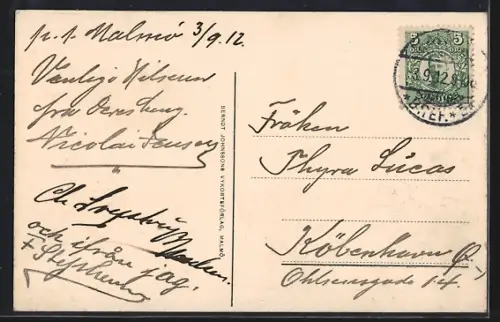 p.t. Malmö 3/9.12.
Venlige Hilsener
fra Deres heng.
Nicolai Jensen
Ch.
och ifrån jag.
+ Stephens
BERNDT JOHNSSONS VYKORTSFÖRLAG, MALMÖ
5 5
3.9.12.
Fröken
Thyra Lucas
København Ø.
Ohlsensgade 14.